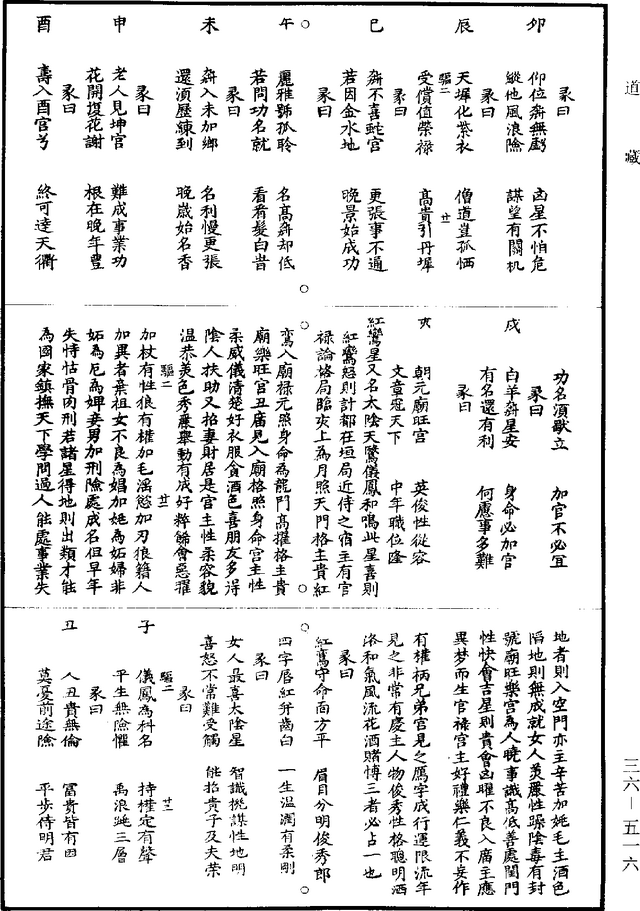 道藏
卯
彖曰
仰位奔無虧　凶星不怕危
縱他風浪險　謀望有關机
辰
彖曰
天墀化紫衣　僧道豈孤恓
受償值榮祿　高貴引丹墀
驅二　廿一
巳
彖曰
奔不喜蛇宮　更張事不通
若因金水地　晚景始成功
午
彖曰
麗雅號孤聆　名高奔却低
若問功名就　看看髮白皆
未
彖曰
奔入未加鄉　名利慢更張
還須歷練到　晚歲始名香
申
彖曰
老人見坤宮　難成事業功
花開復花謝　根在晚年豐
酉
彖曰
壽入酉宮兮　終可達天衢
功名須獻立　加官不必宜
戌
彖曰
白羊奔星安　身命必加官
有名還有利　何慮事多難
亥
彖曰
朝元廟旺宮　英俊性從容
文章冠天下　中年職位隆
紅鸞星又名太陰天驚儀鳳和鳴此星喜則
紅鸞怒則計都在垣局近侍之宿主有官
祿論格局臨亥上為月照天門格主貴紅
鸞入廟祿元照身命為龍門高擢格主貴
廟樂旺宮丑廣見入廟格照身命宮主性
柔威儀清楚好衣服貪酒色喜朋友多得
陰人扶助又招妻財居是宮主性柔容貌
溫恭美色秀麗舉動有成好粹餙會惡擢
驅二　廿二
加杖有性狠有權加毛滛慾加刃狼籍人
加異者棄祖女不良為娼加姚為妬婦非
妬為尼為婢妾男加刑險處成名但早年
失恃怙骨肉刑若諸星得地則出類才能
為國家鎮撫天下學問過人能處事業失
地者則入空門亦主辛苦加姚毛主酒色
陷地則無成就女人美麗性躁陰毒有封
號廟旺樂宮為人曉事識高低善處閨門
性快會吉星則貴會凶曜不良入廣主應
異夢而生官祿宮主好禮樂仁義不妄作
有權柄兄弟宮見之鴈字成行運限流年
見之非常有慶主人物俊秀性格聰明洒
洛和氣風流花酒賭博三者必占一也
彖曰
紅鸞守命面方平　眉目分明俊秀郎
四字唇紅并齒白　一生溫潤有柔剛
彖曰
女人最喜太陰星　智識機謀性地明
喜怒不常難受觸　能招貴子及夫榮
驅二　廿三
子
彖曰
儀鳳為科名　持權定有聲
平生無險懼　禹浪跳三層
丑
彖曰
人丑貴無倫　冨貴皆有因
莫憂前途險　平步待明君
三六—五一六